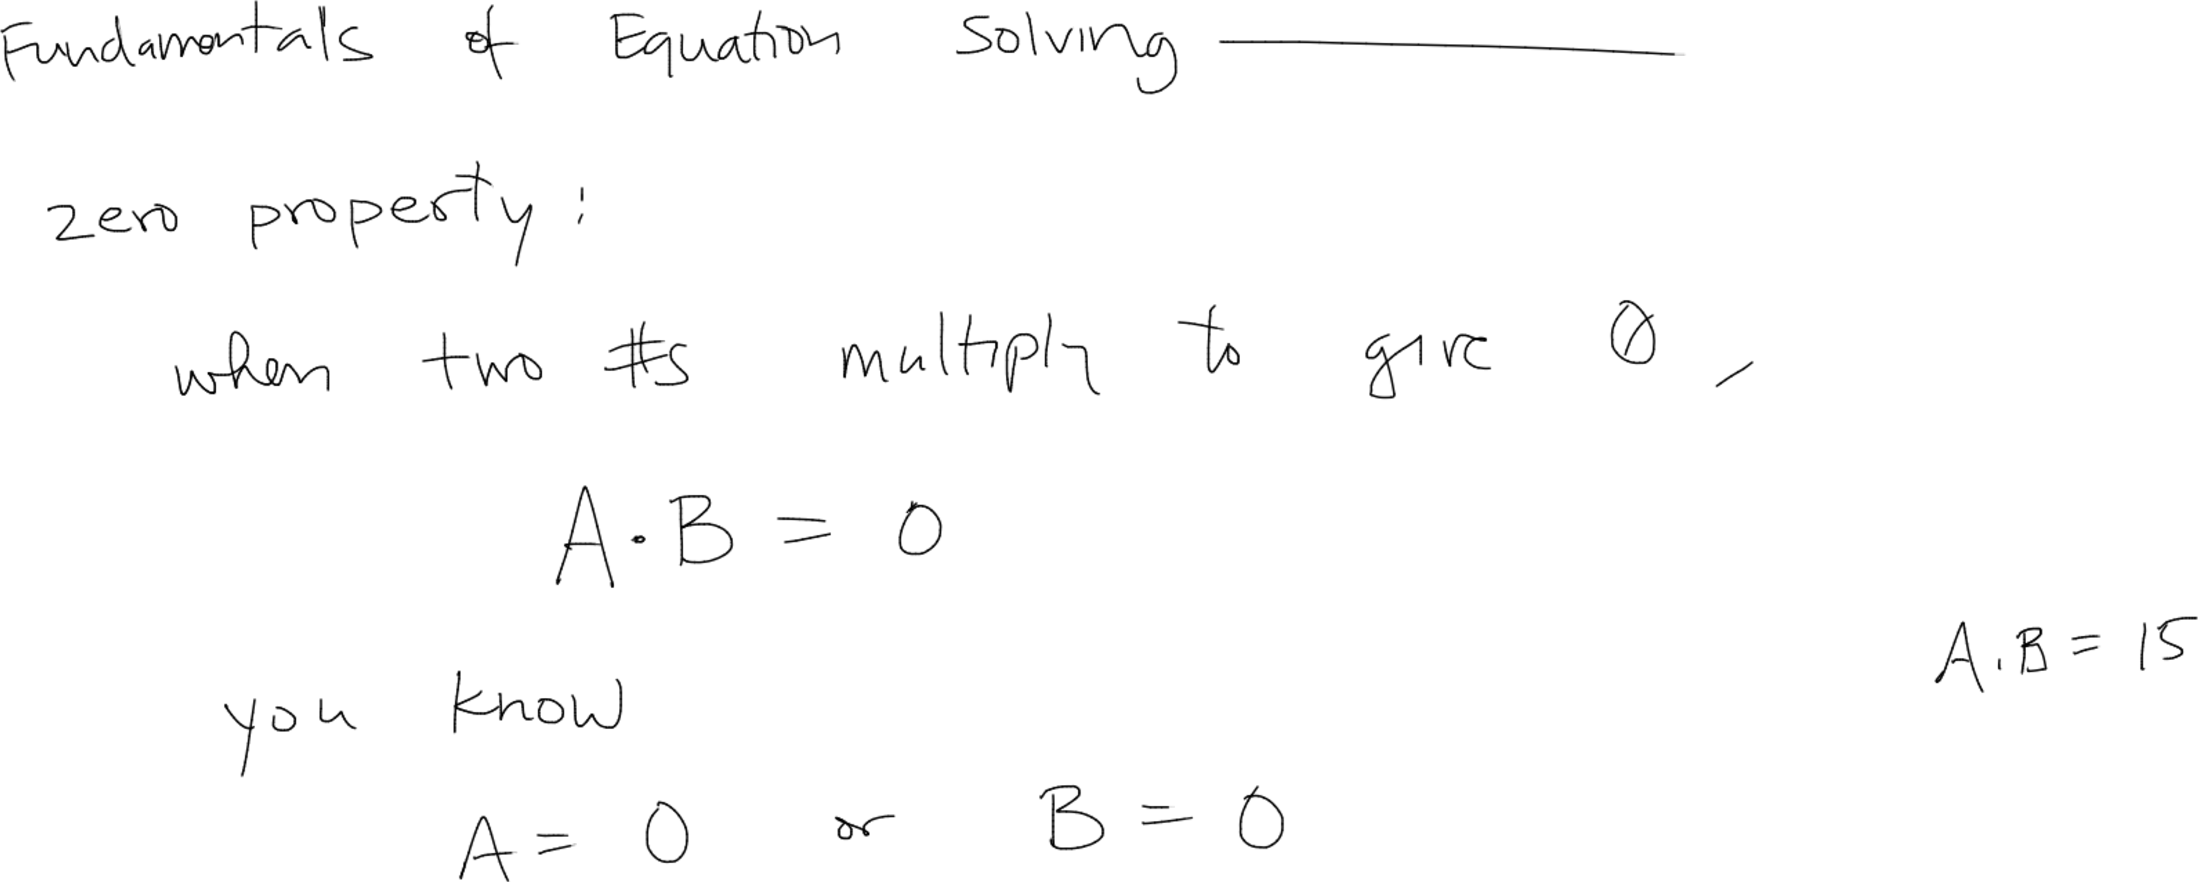 Fundamentals of Equation Solving
zero property:
when two #s multiply to give 0,
A·B = 0
A·B = 15
you know
A = 0 or B = 0